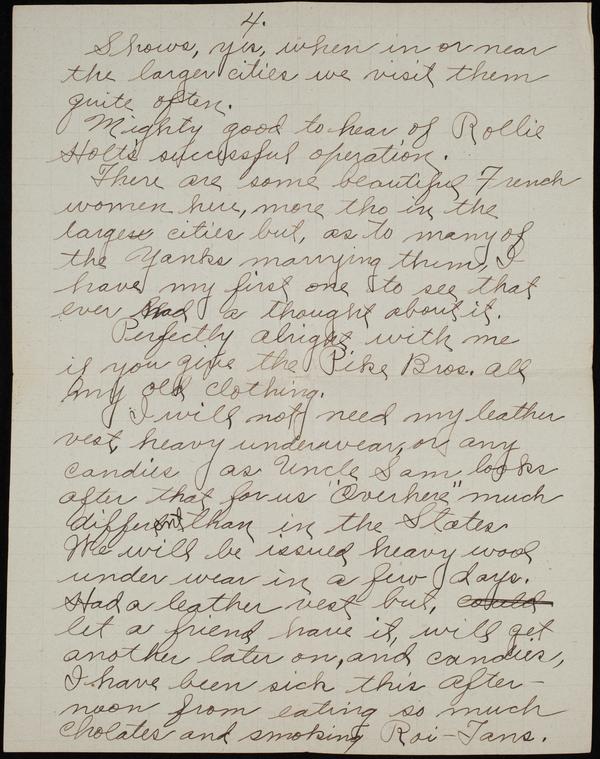 4.
Shows, yes, when in or near
the larger cities we visit them
quite often.
Mighty good to hear of Rollie
Holt's successful operation.
There are some beautiful French
women here, more tho in the
larger cities but, as to many of
the Yanks marrying them, I
have my first one to see that
ever had a thought about it.
Perfectly alright with me
if you give the Pike Bros. all
my old clothing.
I will not need my leather
vest, heavy underwear, or any
candies as Uncle Sam looks
after that for us "Overhere" much
different than in the States
We will be issued heavy wool
under wear in a few days.
Had a leather vest but, could
let a friend have it, will get
another later on, and candies,
I have been sick this after-
noon from eating so much
cholates and smoking Roi-Tans.